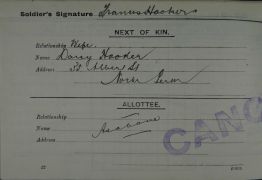 Soldier's Signature Francis Hooker
NEXT OF KIN.
Relationship Wife
Name Daisy Hooker
Address 52 Albert St
North
ALLOTTEE.
Relationship
Name As above
Address
CANC